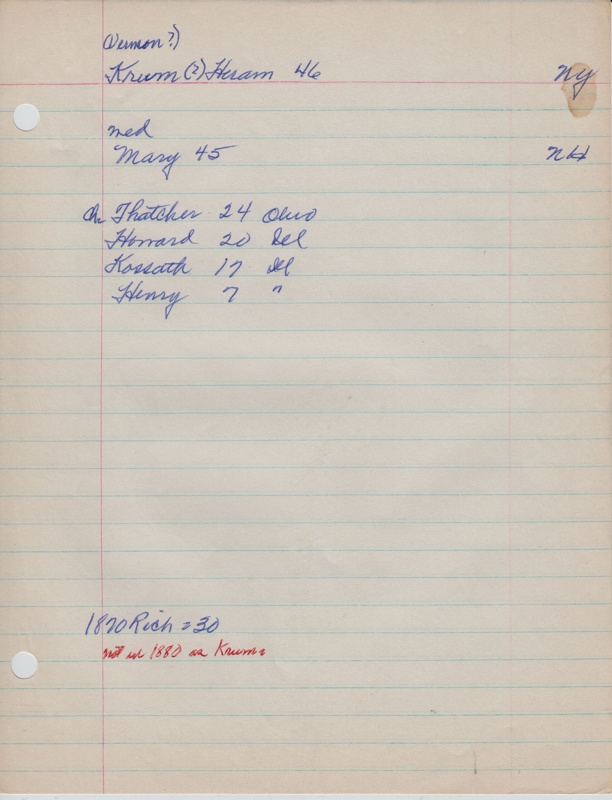 (Vermon?)
Krum(?) Hiram 46 NY
med
Mary 45 NH
Ch Thatcher 24 Ohio
Howard 20 Ill
Kossath 17 Ill
Henry 7 "
1870 Rich = 30
not in 1880 as Krum =